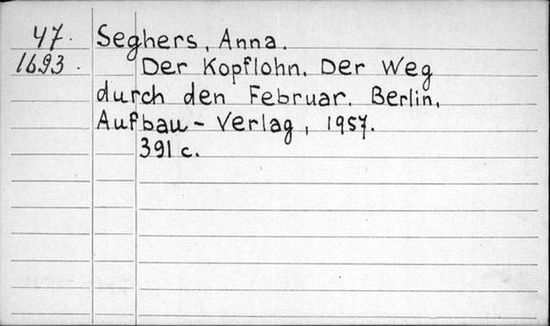 47. Seghers, Anna.
1693. Der Kopflohn. Der Weg
durch den Februar. Berlin,
Aufbau - Verlag, 1957.
391 c.